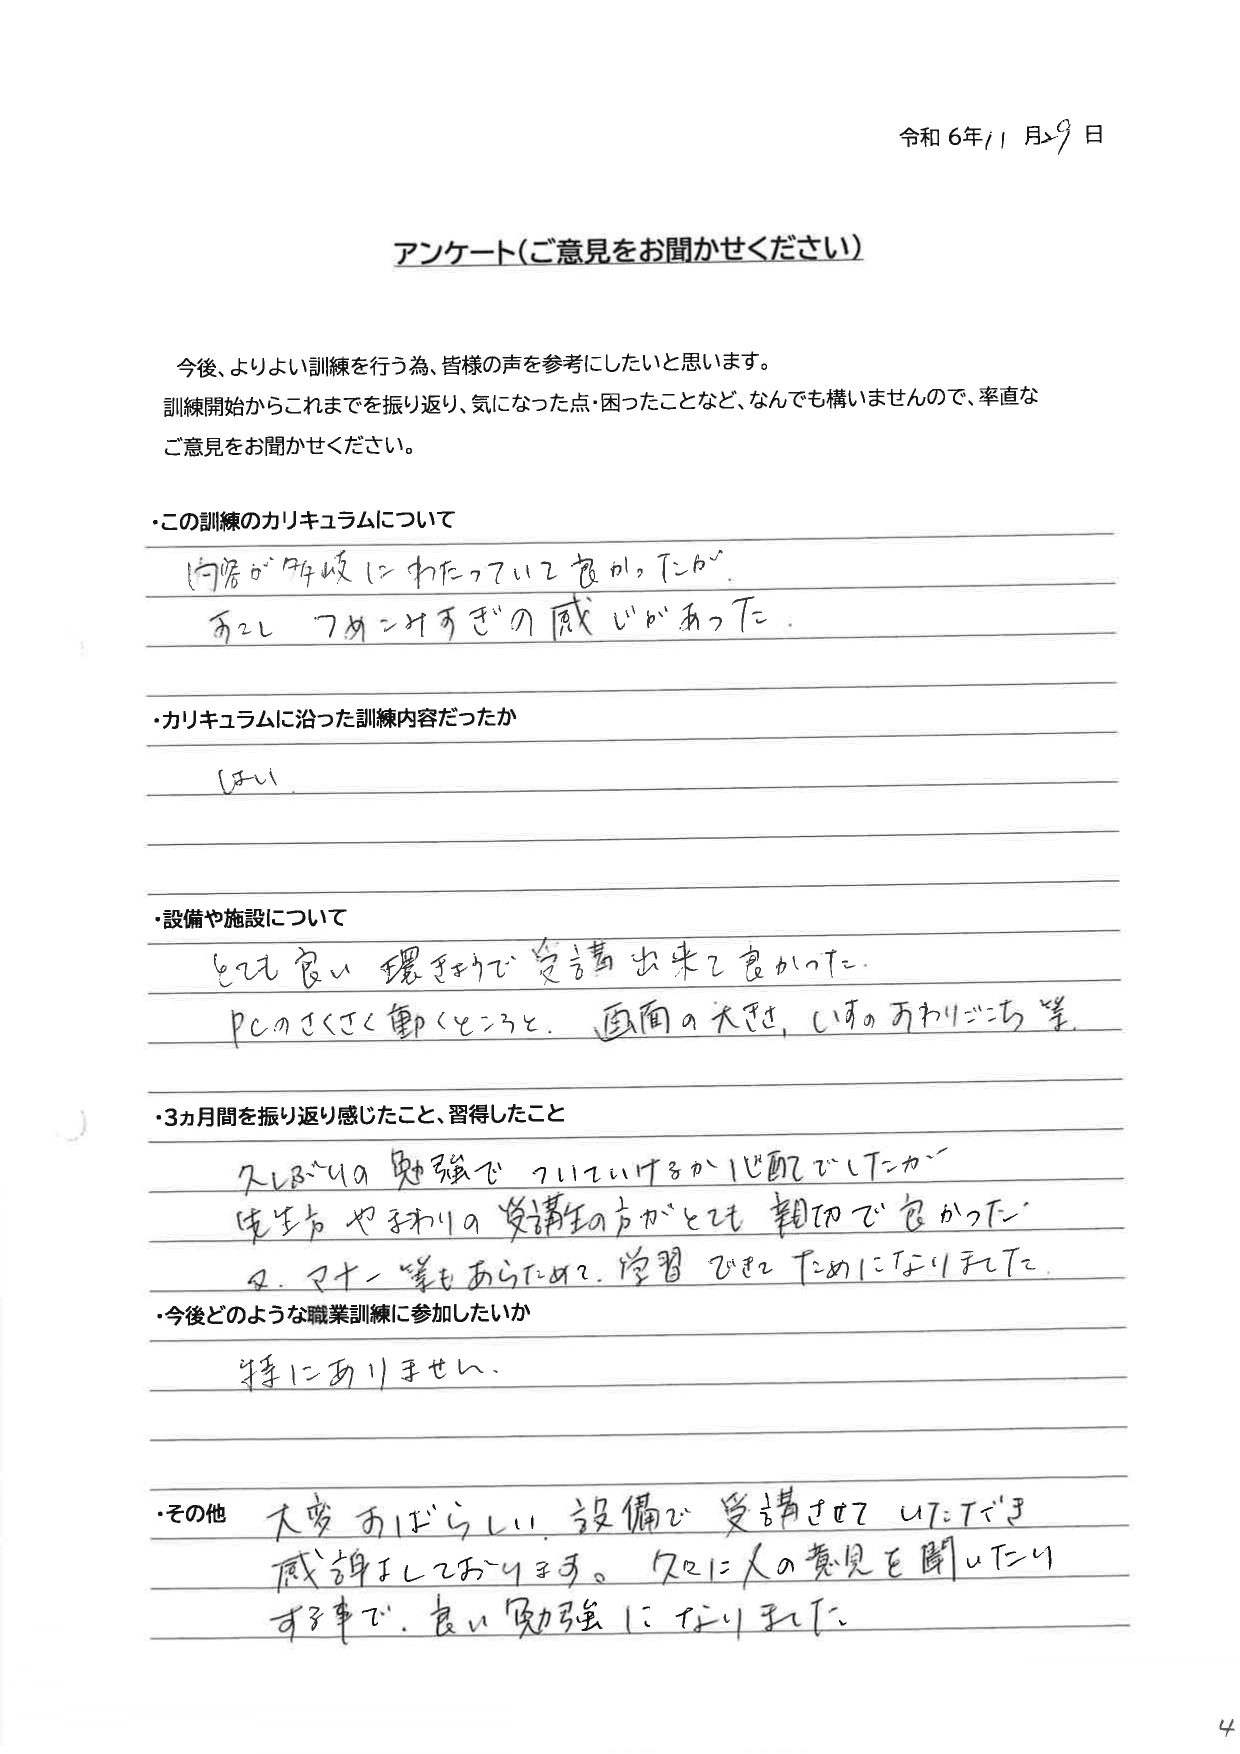 令和 6年 11 月 29 日
アンケート(ご意見をお聞かせください)
今後、よりよい訓練を行う為、皆様の声を参考にしたいと思います。
訓練開始からこれまでを振り返り、気になった点・困ったことなど、なんでも構いませんので、率直な
ご意見をお聞かせください。
・この訓練のカリキュラムについて
内容が多岐にわたっていて良かったが、
すこし つめこみすぎの感じがあった.
・カリキュラムに沿った訓練内容だったか
はい.
・設備や施設について
とても良い 環きょうで 受講出来て良かった.
PCのさくさく動くところと. 画面の大きさ, いすのすわりごこち等.
・3ヵ月間を振り返り感じたこと、習得したこと
久しぶりの勉強で ついていけるか心配でしたが
先生方やまわりの受講生の方がとても 親切で良かった.
又. マナー等もあらためて. 学習 できて ためになりました.
・今後どのような職業訓練に参加したいか
特にありません.
・その他 大変すばらしい. 設備で 受講させて いただき
感謝ましております。 久々に人の意見を聞いたり
する事で. 良い勉強になりました.
4